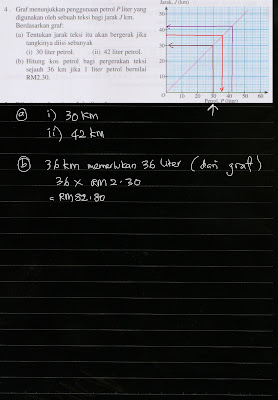 4. Graf menunjukkan penggunaan petrol P liter yang
digunakan oleh sebuah teksi bagi jarak J km.
Berdasarkan graf:
(a) Tentukan jarak teksi itu akan bergerak jika
tangkinya diisi sebanyak
(i) 30 liter petrol. (ii) 42 liter petrol.
(b) Hitung kos petrol bagi pergerakan teksi
sejauh 36 km jika 1 liter petrol bernilai
RM2.30.
Jarak, J (km)
50
40
30
20
10
0 10 20 30 40 50 60
Petrol, P (liter)
(a) i) 30 km
ii) 42 km
(b) 36 km memerlukan 36 liter (dari graf)
36 x RM 2.30
= RM 82.80